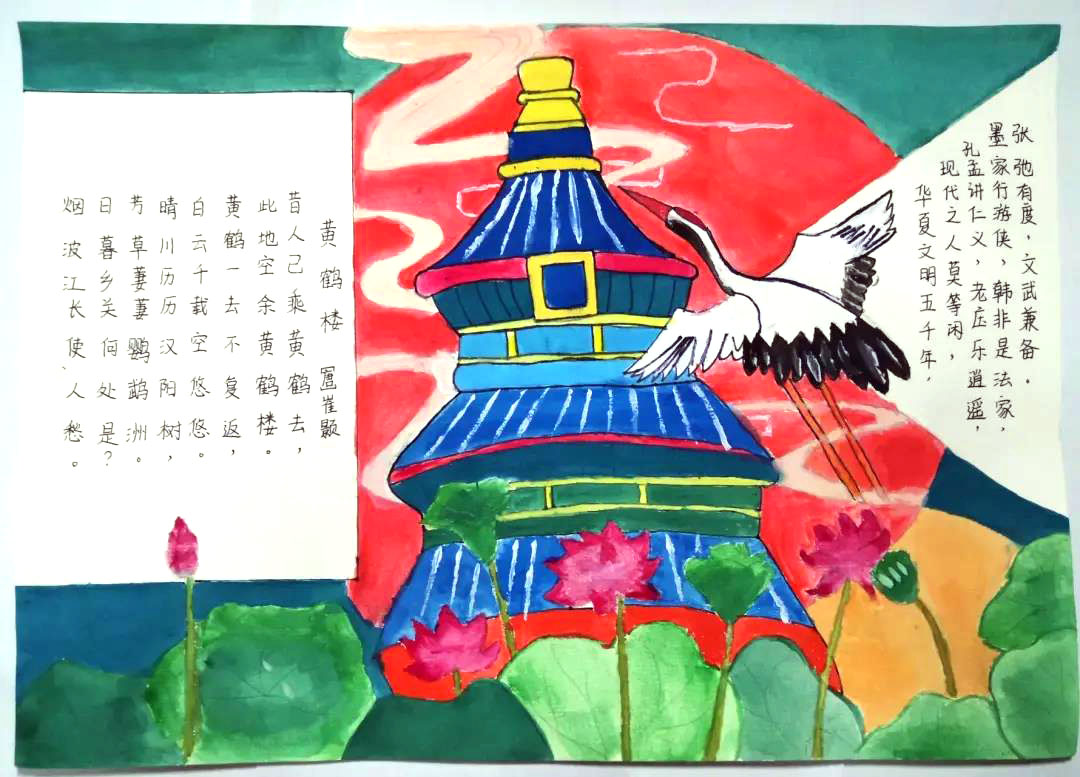 张弛有度，文武兼备。
墨家行游侠，韩非是法家，
孔孟讲仁义，老庄乐逍遥，
现代之人莫等闲，
华夏文明五千年，
黄鹤楼 崔颢
昔人已乘黄鹤去，
此地空余黄鹤楼。
黄鹤一去不复返，
白云千载空悠悠。
晴川历历汉阳树，
芳草萋萋鹦鹉洲。
日暮乡关何处是？
烟波江长使人愁。